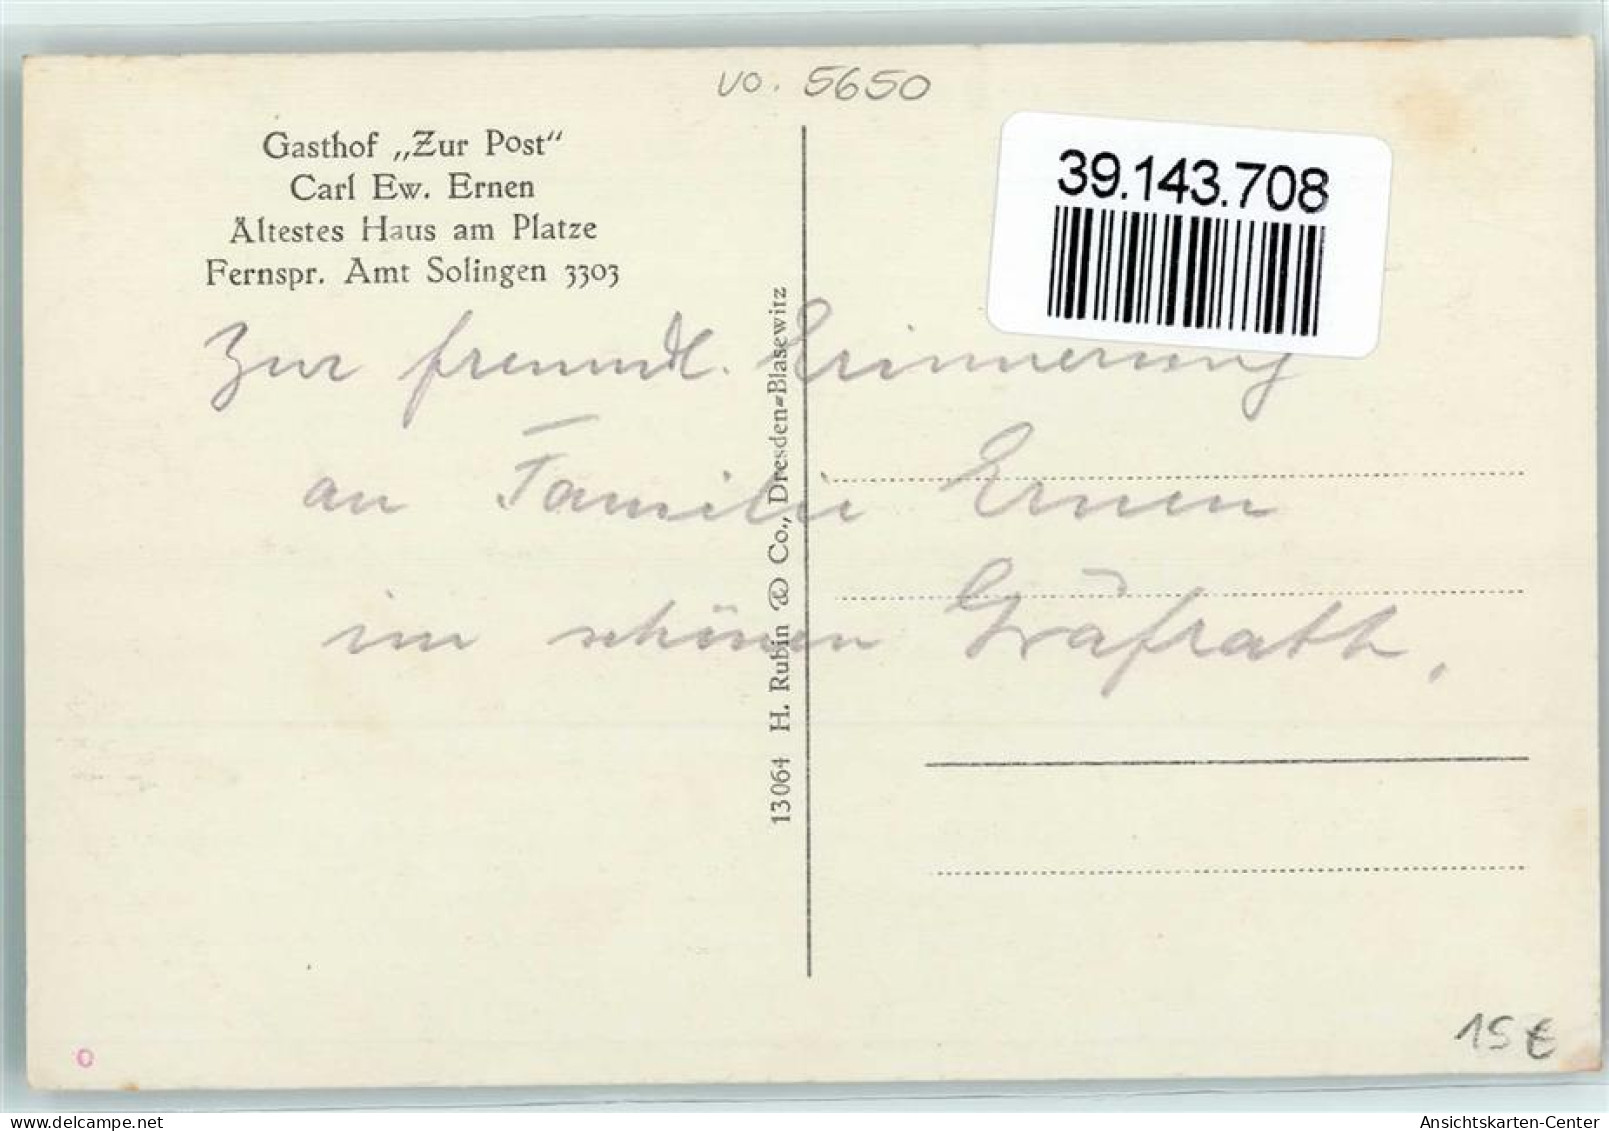 vo. 5650
Gasthof „Zur Post“
Carl Ew. Ernen
Ältestes Haus am Platze
Fernspr. Amt Solingen 3303
39.143.708
Zur freundl. Erinnerung
an Familie Ernen
im schönen Gräfrath.
13064 H. Rubin & Co., Dresden-Blasewitz
0
15 €
Ansichtskarten-Center